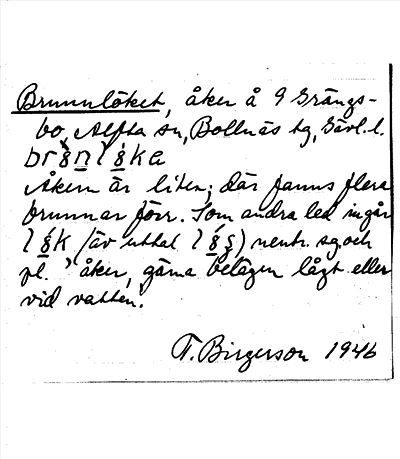 Brunnlöket, åker å 9 Grängs-
bo, Alfta sn, Bollnäs tg, Gävl. l.
Åkern är liten; där fanns flera
brunnar förr. Som andra led ingår
(äv uttal) neutr. sg och
pl. "åker, gärna belägen lågt eller
vid vatten.
T. Birgerson 1946